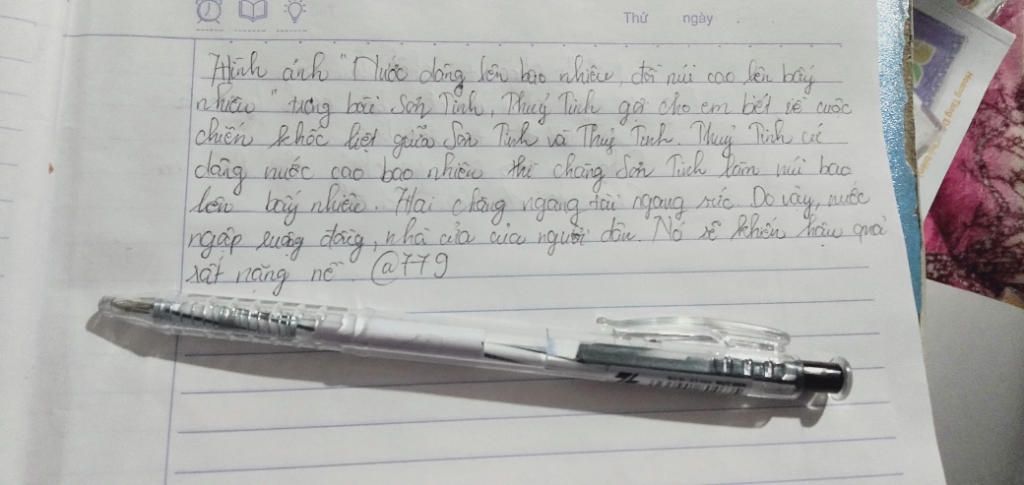 Thứ ngày
Hình ảnh "Nước dâng lên bao nhiêu, đồi núi cao lên bấy
nhiêu" trong bài Sơn Tinh, Thuỷ Tinh gợi cho em biết về cuộc
chiến khốc liệt giữa Sơn Tinh và Thuỷ Tinh. Thuỷ Tinh cứ
dâng nước cao bao nhiêu thì chàng Sơn Tinh làm núi bao
lên bấy nhiêu. Hai chàng ngang tài ngang sức. Do vậy, nước
ngập ruộng đồng, nhà cửa của người dân. Nó sẽ khiến hậu quả
rất nặng nề. @779